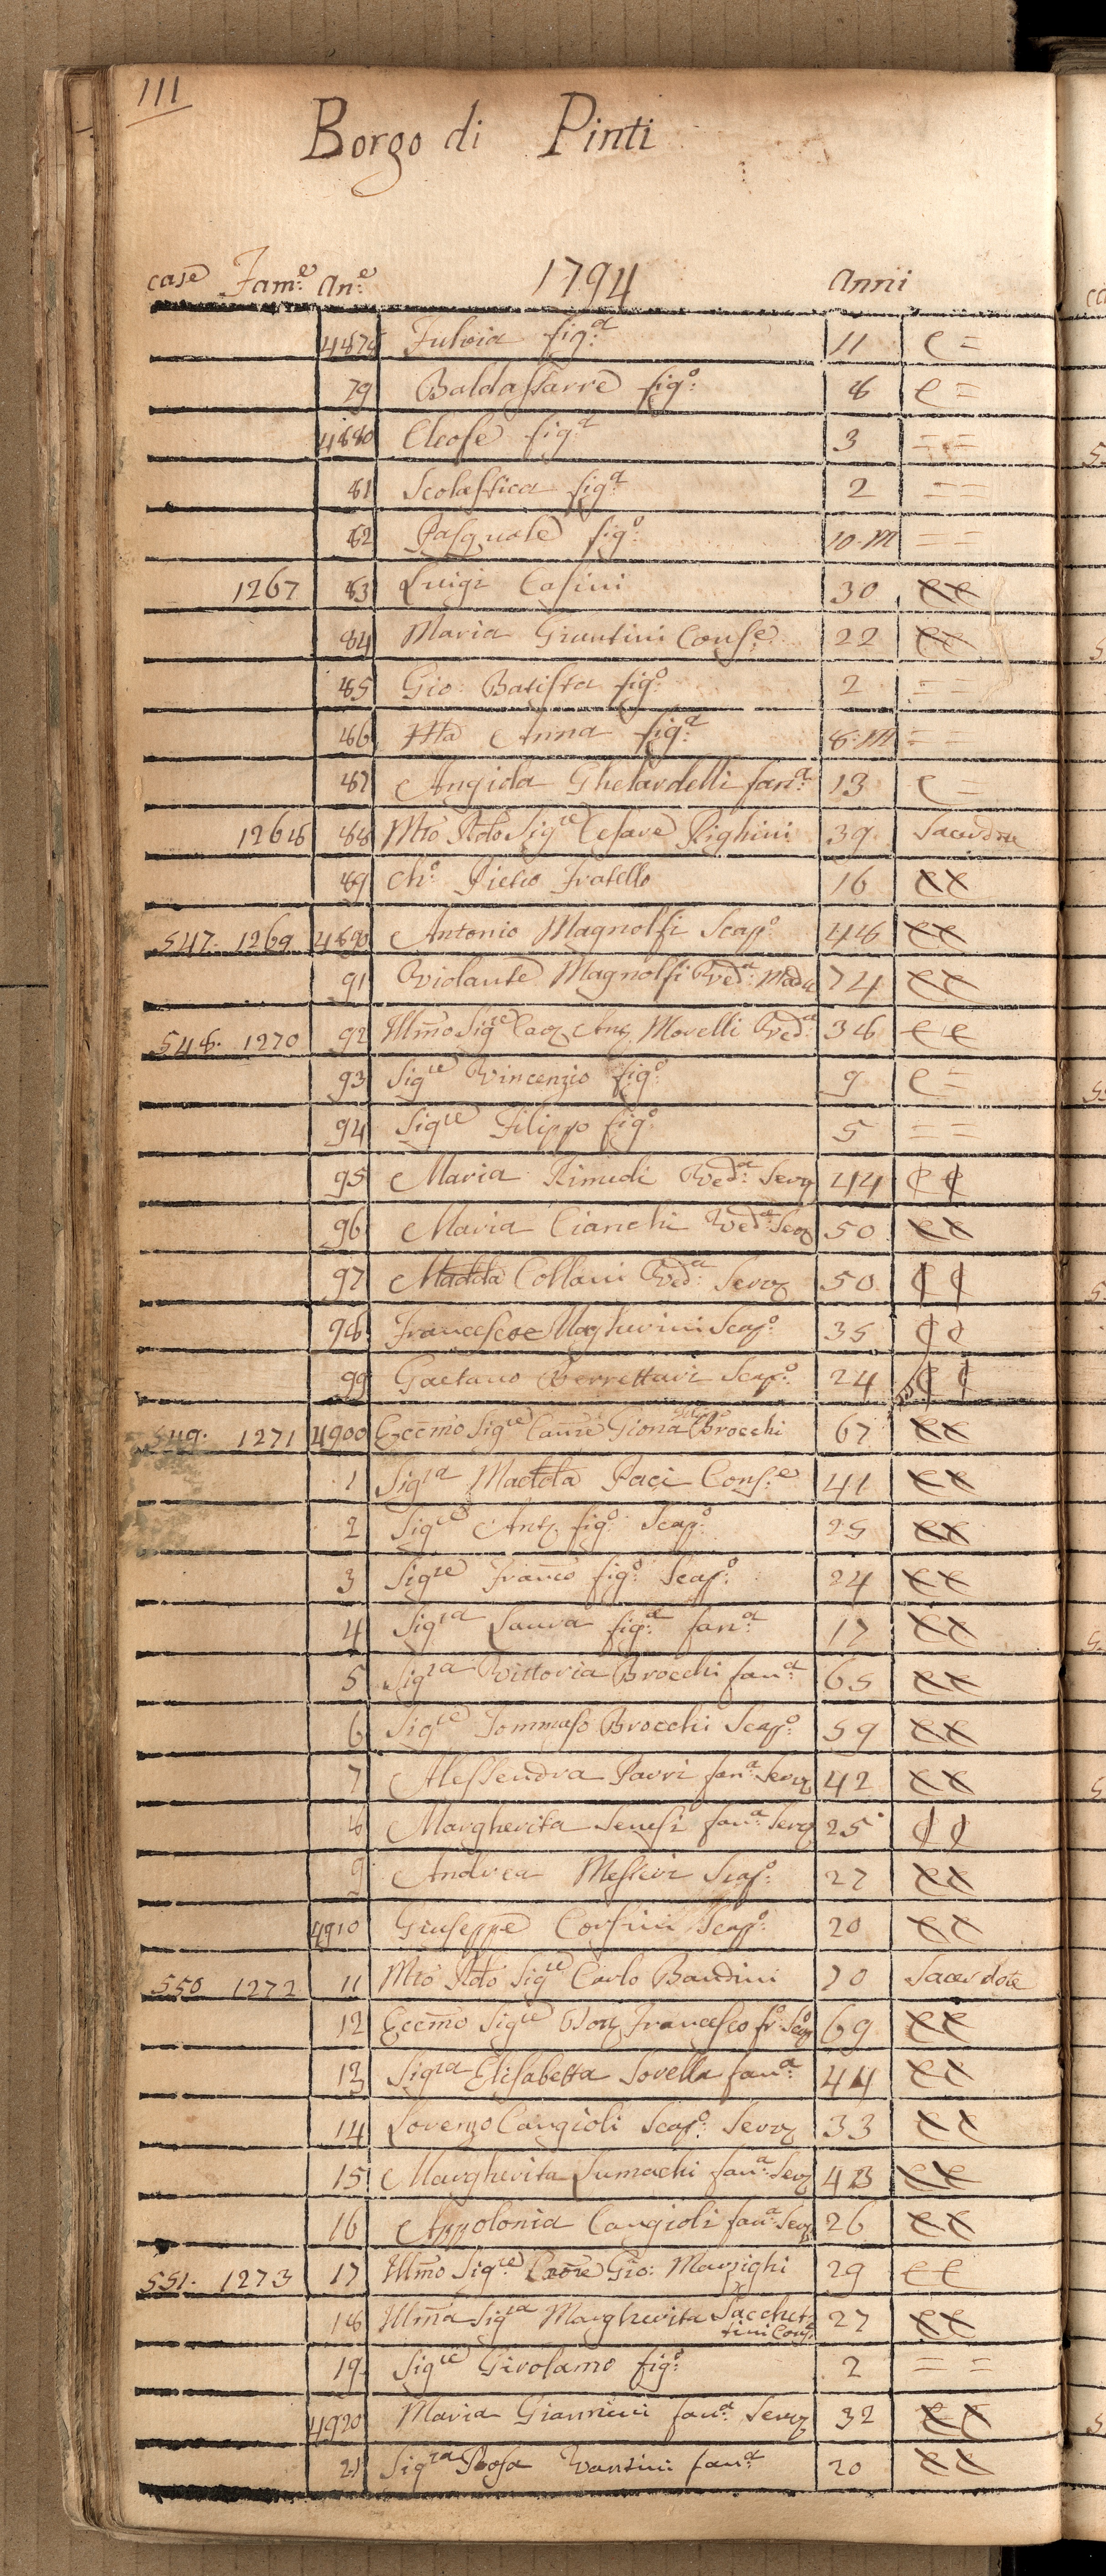 111
Borgo di Pinti
case Fam:e an:e 1794 anni
4878 Fulvia fig:a 11 C =
79 Baldassarre fig:o 8 C =
4880 Cleofe fig:a 3 = =
81 Scolastica fig:a 2 = =
82 Pasquale fig:o 10. M = =
1267 83 Luigi Casini 30 CC
84 Maria Giuntini Cons:e 22 CC
85 Gio: Batista fig:o 2 = =
86 Ma Anna fig:a 8. M = =
87 Angiola Ghelardelli fan:a 13 C =
1268 88 Mto Rdo Sigre Cesare Righini 39 Sacerdote
89 Ch:o Pietro Fratello 16 CC
547. 1269 4890 Antonio Magnolfi Scap:o 48 CC
91 Violante Magnolfi Ved:a Madre 74 CC
548. 1270 92 Illmo Sigre Morelli Ved:a 38 CC
93 Sigre Vincenzio fig:o 9 C =
94 Sigre Filippo fig:o 5 = =
95 Maria Rimedi Ved:a Serv 44 CC
96 Maria Cianchi Ved:a Serv 50 CC
97 Madda Collani Ved:a Serv 50 CC
98 Francesco Magherini Scap:o 35 CC
99 Gaetano Berrettari Scap:o 24 CC
549. 1271 4900 Eccmo Sigre Brocchi 67 CC
1 Sigra Maddla Paci Cons:e 41 CC
2 Sigre Anto fig:o Scap:o 25 CC
3 Sigre Franco fig:o Scap:o 24 CC
4 Sigra Laura fig:a fan:a 17 CC
5 Sigra Vittoria Brocchi fan:a 65 CC
6 Sigre Tommaso Brocchi Scap:o 59 CC
7 Alessandra Parri fan:a Serv 42 CC
8 Margherita Senesi fan:a Serv 25 CC
9 Andrea Messeri Scap:o 27 CC
4910 Giuseppe Corsini Scap:o 20 CC
550 1272 11 Mto Rdo Sigre Carlo Bandini 70 Sacerdote
12 Eccmo Sigre Francesco fr:o Scap 69 CC
13 Sigra Elisabetta Sorella fan:a 44 CC
14 Lorenzo Cangioli Scap:o Serv 33 CC
15 Margherita Fumachi fan:a Serv 43 CC
16 Appolonia Cangioli fan:a Serv 26 CC
551. 1273 17 Illmo Sigre Gio: Marzighi 29 CC
18 Illma Sigra Margherita Sacchet
tini Cons 27 CC
19 Sigre Girolamo fig:o 2 = =
4920 Maria Giannini fan:a Serv 32 CC
21 Sigra Rosa Vantini fan:a 20 CC